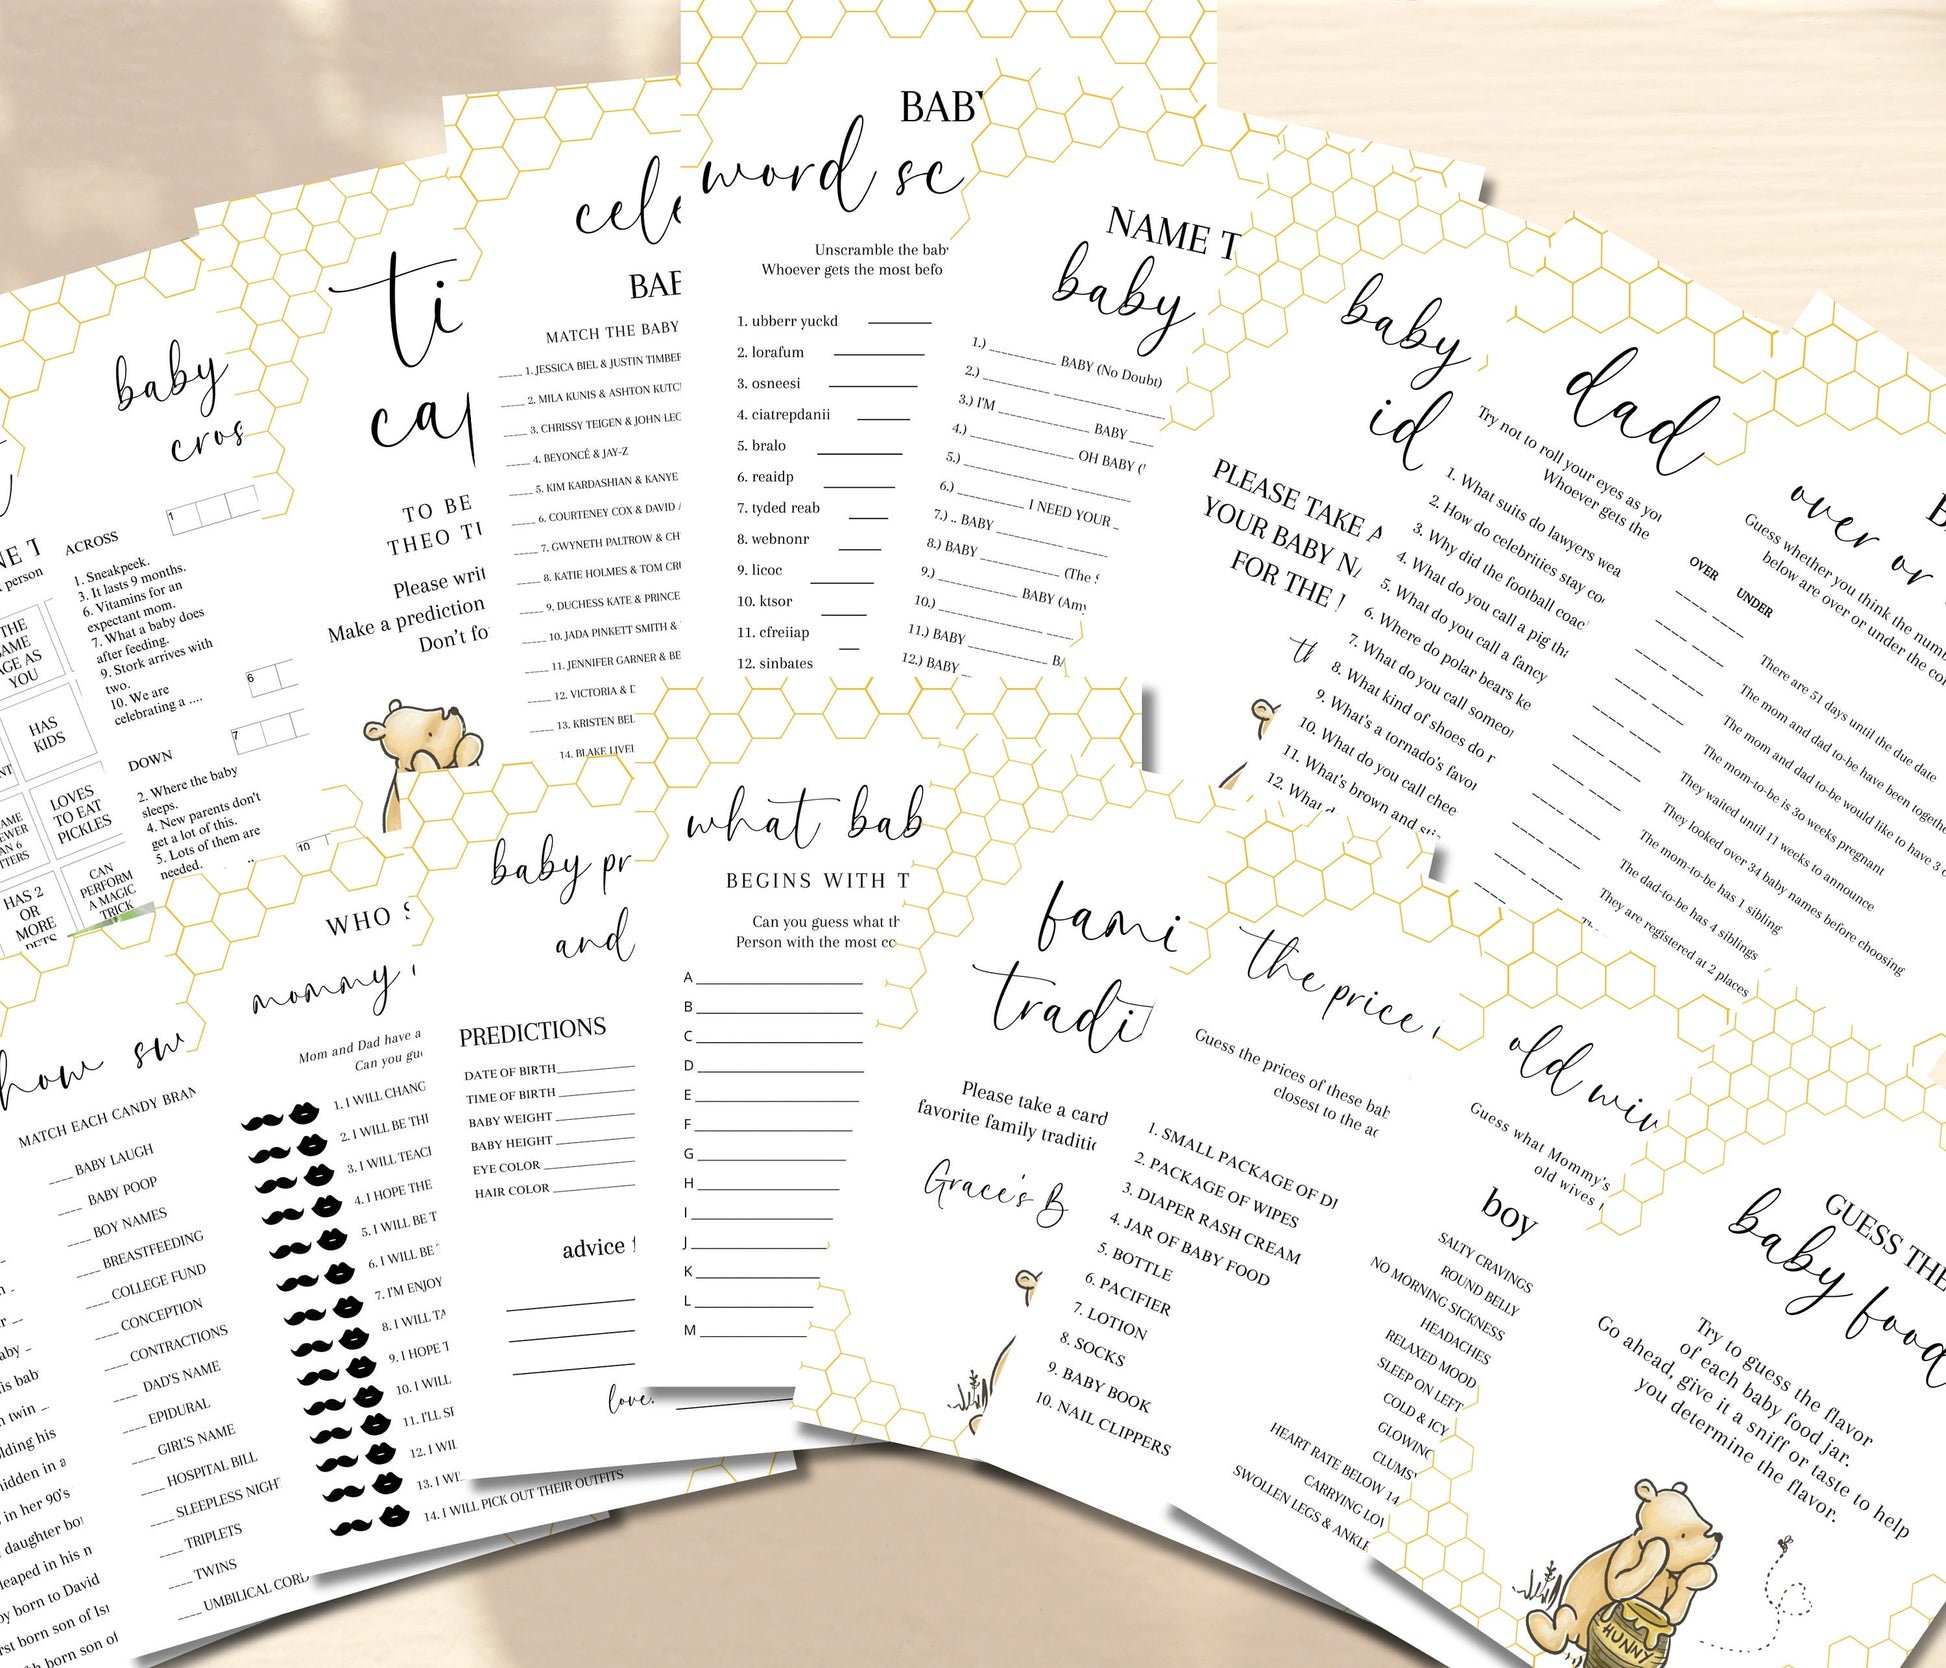 NE T
person
THE
SAME
AGE AS
YOU
HAS
KIDS
LOVES
TO EAT
PICKLES
HAS 2
OR
MORE
PETS
CAN
PERFORM
A MAGIC
TRICK
baby
cros
ACROSS
1. Sneakpeek.
3. It lasts 9 months.
6. Vitamins for an
expectant mom.
7. What a baby does
after feeding.
9. Stork arrives with
two.
10. We are
celebrating a ....
DOWN
2. Where the baby
sleeps.
4. New parents don't
get a lot of this.
5. Lots of them are
needed.
1
6
7
10
ti
cap
TO BE
THEO TU
Please writ
Make a prediction
Don't fo
cele
BAB
MATCH THE BABY
____ 1. JESSICA BIEL & JUSTIN TIMBER
____ 2. MILA KUNIS & ASHTON KUTC
____ 3. CHRISSY TEIGEN & JOHN LEG
____ 4. BEYONCÉ & JAY-Z
____ 5. KIM KARDASHIAN & KANYE
____ 6. COURTENEY COX & DAVID A
____ 7. GWYNETH PALTROW & CH
____ 8. KATIE HOLMES & TOM CRU
____ 9. DUCHESS KATE & PRINCE
____ 10. JADA PINKETT SMITH &
____ 11. JENNIFER GARNER & BE
____ 12. VICTORIA & D
____ 13. KRISTEN BEL
14. BLAKE LIVEL
BABY
word sc
Unscramble the baby
Whoever gets the most befo
1. ubberr yuckd
2. lorafum
3. osneesi
4. ciatrepdanii
5. bralo
6. reaidp
7. tyded reab
8. webnonr
9. licoc
10. ktsor
11. cfreiiap
12. sinbates
NAME T
baby
1.) ________ BABY (No Doubt)
2.)
3.) I'M ________ BABY ___
4.) ________ OH BABY (
5.)
6.) ________ I NEED YOUR _
7.) .. BABY
8.) BABY ________ (The S
9.) ________ BABY (Amy
10.)
11.) BABY ________ BA
12.) BABY
baby
id
PLEASE TAKE A
YOUR BABY NA
FOR THE
th
dad
Try not to roll your eyes as you
Whoever gets the
1. What suits do lawyers wea
2. How do celebrities stay co
3. Why did the football coac
4. What do you call a pig tha
5. What do you call a fancy
6. Where do polar bears ke
7. What do you call someo
8. What kind of shoes do r
9. What's a tornado's favo
10. What do you call chee
11. What's brown and sti
12. What d
over or
Guess whether you think the numb
below are over or under the co
OVER
UNDER
There are 51 days until the due date
The mom and dad to-be have been togethe
The mom and dad to-be would like to have 3 c
The mom-to-be is 30 weeks pregnant
They waited until 11 weeks to announce
They looked over 34 baby names before choosing
The mom-to-be has 1 sibling
The dad-to-be has 4 siblings
They are registered at 2 places
how sw
MATCH EACH CANDY BRAN
____ BABY LAUGH
____ BABY POOP
____ BOY NAMES
____ BREASTFEEDING
____ COLLEGE FUND
____ CONCEPTION
____ CONTRACTIONS
____ DAD'S NAME
____ EPIDURAL
____ GIRL'S NAME
____ HOSPITAL BILL
____ SLEEPLESS NIGHT
____ TRIPLETS
____ TWINS
____ UMBILICAL CORD
is bab
twin
lding his
hidden in a
in her 90's
daughter bo
leaped in his
born to David
rst born son of Is
born son of
WHO S
mommy
Mom and Dad have a
Can you gue
1. I WILL CHANG
2. I WILL BE THE
3. I WILL TEACH
4. I HOPE THE
5. I WILL BE T
6. I WILL BE
7. I'M ENJOY
8. I WILL TA
9. I HOPE T
10. I WILL
11. I'LL SI
12. I WIL
13. I WI
14. I WILL PICK OUT THEIR OUTFITS
baby pr
and
PREDICTIONS
DATE OF BIRTH
TIME OF BIRTH
BABY WEIGHT
BABY HEIGHT
EYE COLOR
HAIR COLOR
advice f
love,
what bab
BEGINS WITH T
Can you guess what th
Person with the most co
A
B
C
D
E
F
G
H
I
J
K
L
M
fami
tradi
Please take a card
favorite family traditio
Grace's B
the price
Guess the prices of these bab
closest to the ac
1. SMALL PACKAGE OF DI
2. PACKAGE OF WIPES
3. DIAPER RASH CREAM
4. JAR OF BABY FOOD
5. BOTTLE
6. PACIFIER
7. LOTION
8. SOCKS
9. BABY BOOK
10. NAIL CLIPPERS
old wiv
Guess what Mommy's
old wives
boy
SALTY CRAVINGS
ROUND BELLY
NO MORNING SICKNESS
HEADACHES
RELAXED MOOD
SLEEP ON LEFT
COLD & ICY
GLOWING
CLUMS
HEART RATE BELOW 14
CARRYING LOW
SWOLLEN LEGS & ANKLE
GUESS THE
baby food
Try to guess the flavor
of each baby food jar.
Go ahead, give it a sniff or taste to help
you determine the flavor.
HUNNY